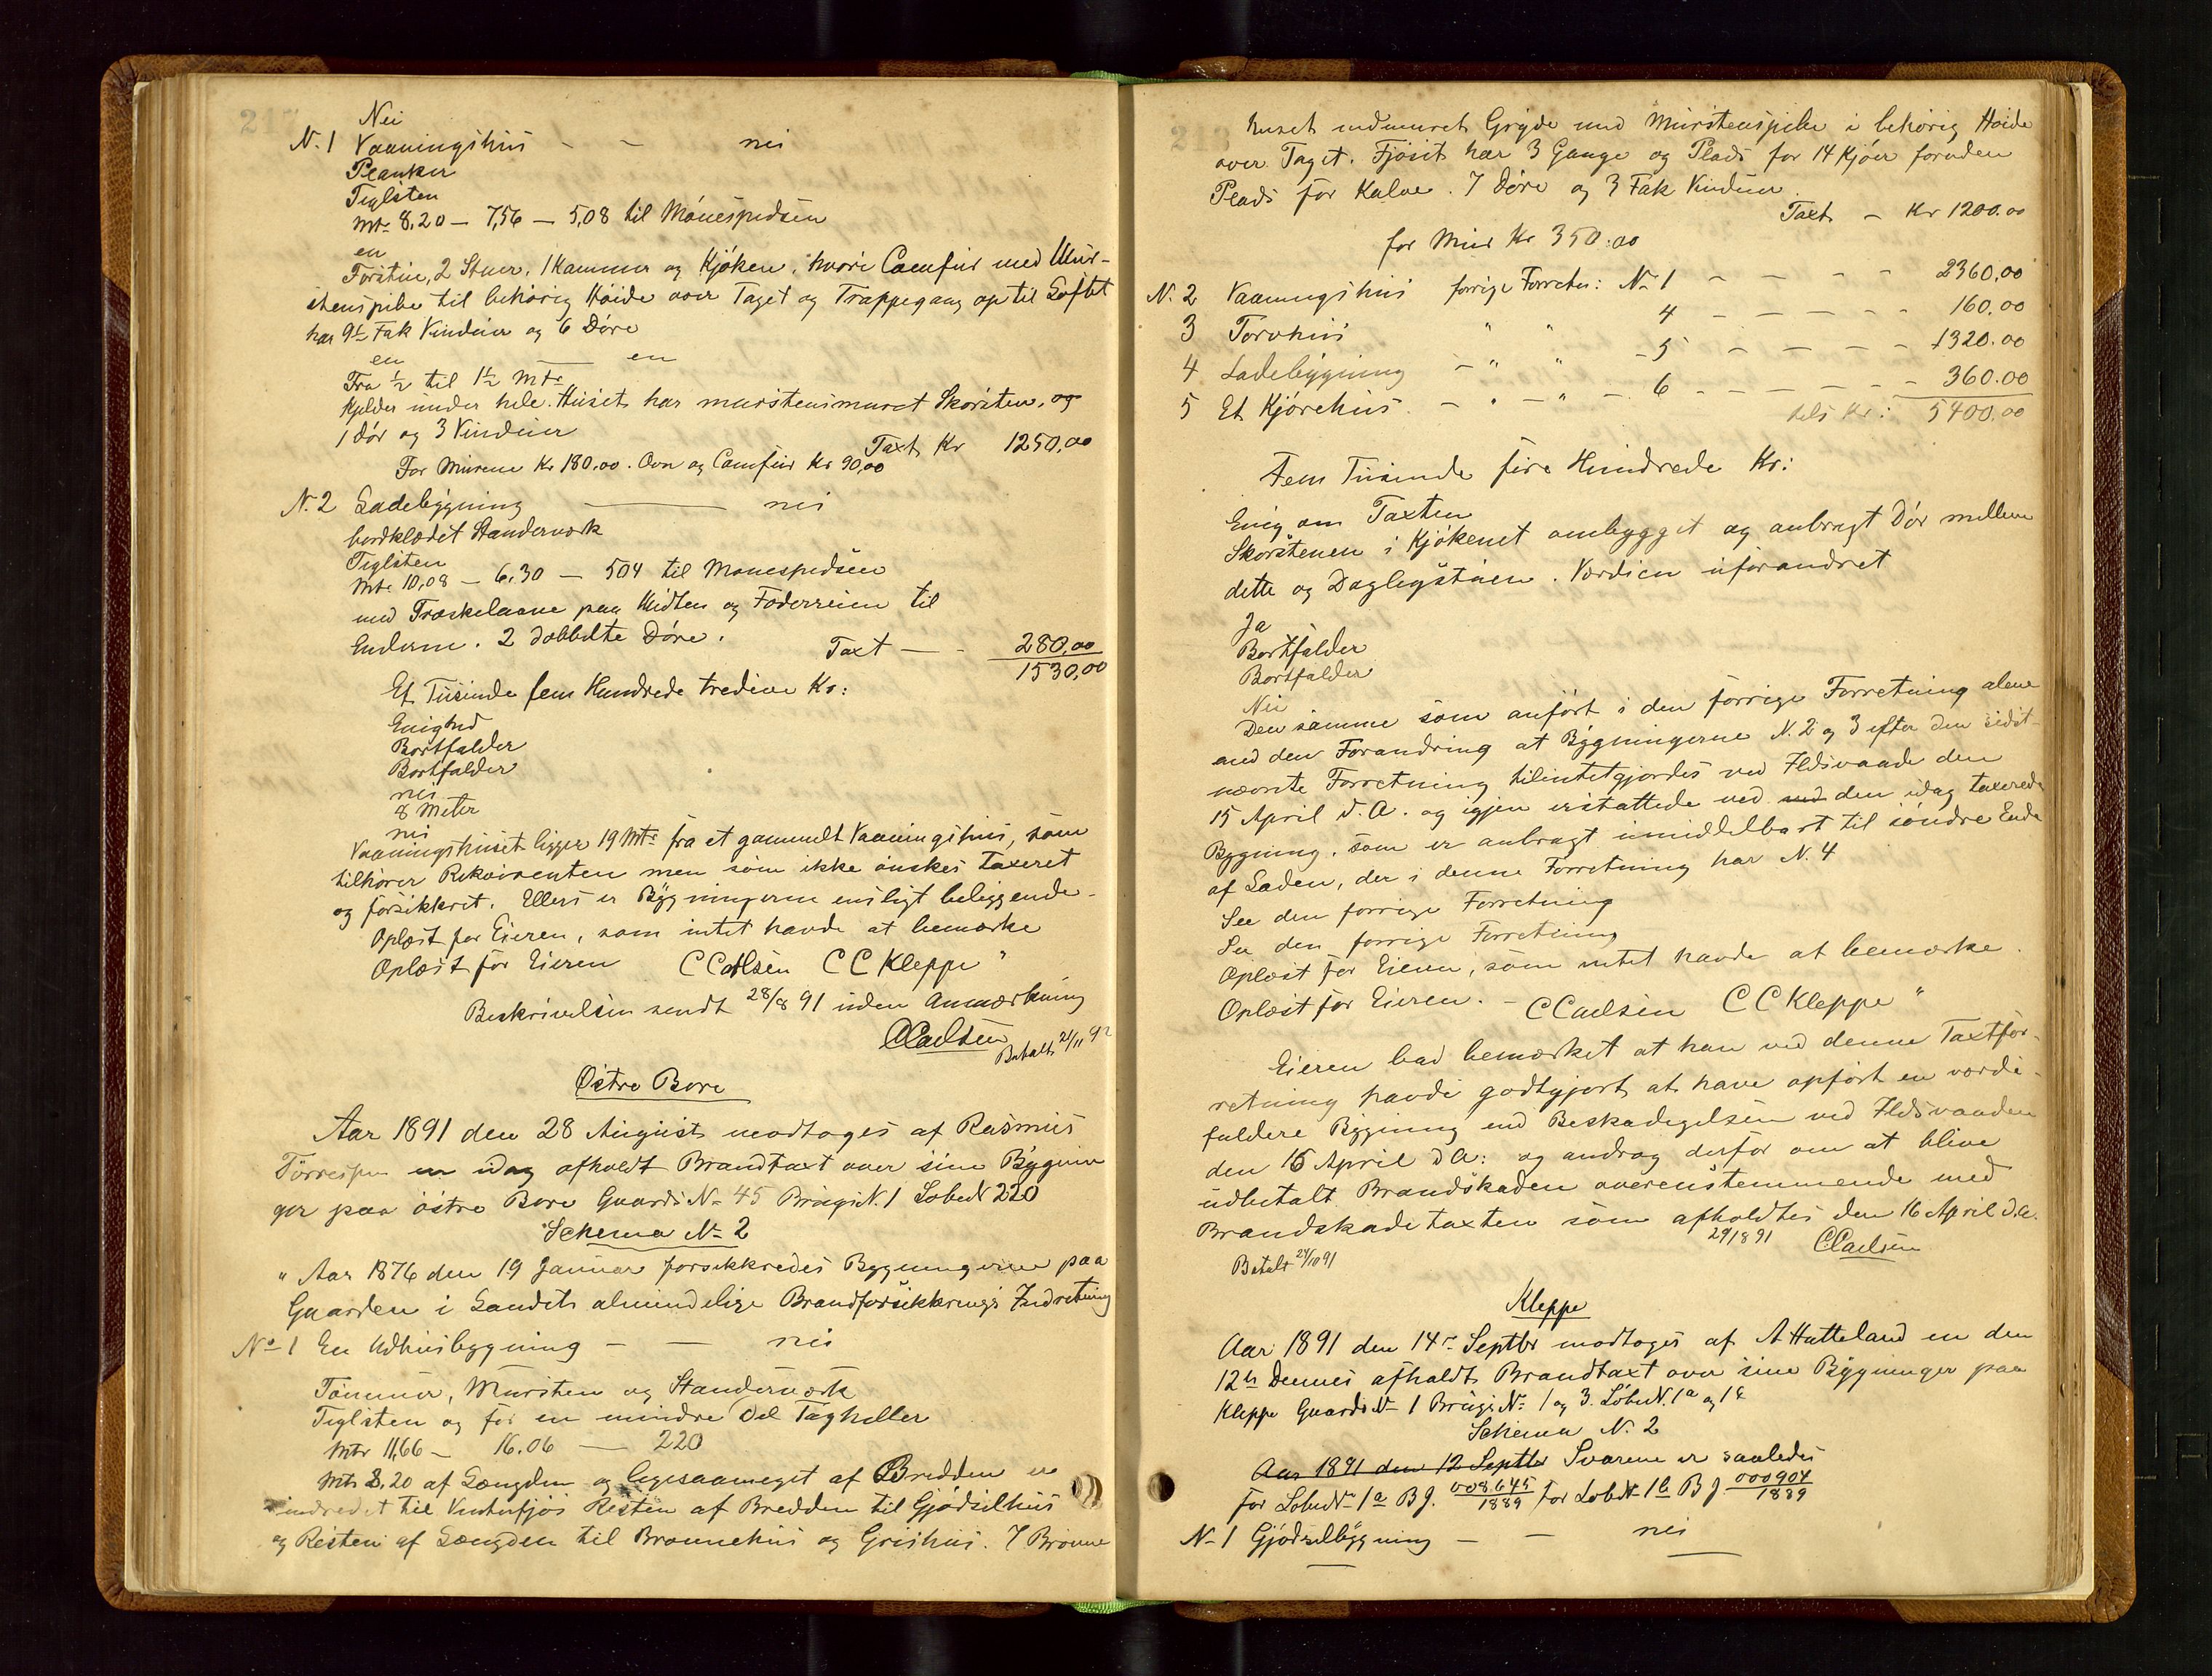 217
Nei
N. 1 Vaaningshus - - nei
Planker
Teglsten
Mtr 8,20 — 7,56 — 5,08 til Mönespidsen
en
Forstue, 2 Stuer, 1 Kammer og Kjöken, hvori Comfur med Mur-
stenspibe til behörig Höide over Taget og Trappegang op til Loftet
har 9½ Fak Vinduer og 6 Döre
en — en
Fra ½ til 1½ Mtr
Kjelder under hele Huset har murstensmuret Skorsten, og
1 dör og 3 Vinduer
Taxt Kr 1250,00
For Murene Kr 180.00. Ovn og Comfur Kr 90,00
N. 2 Ladebygning — nei
bordklædet Standerværk
Teglsten
Mtr 10,08 — 6,30 — 504 til Mönespidsen
med Træskelaave paa Midten og Foderreiin til
Enderne. 2 dobbelte Döre.
Taxt — - 280,00
1530,00
Et Tusinde fem Hundrede tredive Kr:
Enighed
Bortfalder
Bortfalder
nei
8 Meter
nei
Vaaningshuset ligger 19 Mtr fra et gammelt Vaaningshus, som
tilhörer Rekvirenten men som ikke önskes taxeret
og forsikkret. Ellers er Bygningerne ensligt beliggende -
Oplæst for Eieren, som intet havde at bemærke
Oplæst for Eieren C Carlsen C C Kleppe "
Beskrivelsen sendt 28/8 91 uden Anmærkning
CCarlsen
Betalt 21/11 92
Östre Bore
Aar 1891 den 28 August modtoges af Rasmus
Törrespen en idag afholdt Brandtaxt over sine Bygnin
ger paa östre Bore Gaards No 45 Brugs N. 1 LobeN 220
Schema No 2
" Aar 1876 den 19 Januar forsikkredes Bygningerne paa
Gaarden i Landets almindelige Brandforsikkrings Indretning
No 1 En Udhusbygning - — nei
Tömmer, Mursten og Standerværk
Teglsten og for en mindre Del Tagheller
Mtr 11,66 — 16.06 — 220
Mtr 8,20 af Længden og ligesaameget af Bredden er
indredet til Vinterfjös Resten af Bredden til Gjödselhus
og Resten af Længden til Brönnehus og Grishus. I Brönne
218
huset indmuret Gryde med Murstenspibe i behörig Höide
over Taget. Fjöset har 3 Gange og Plads for 14 Kjöer foruden
Plads for Kalve. 7 Döre og 3 Fak Vinduer.
Taxt - Kr 1200.00
for Mur Kr 350.00
N. 2 Vaaningshus forrige Forretn: No 1 - - - - 2360,00
3 Torvhus " " 4 - - - - 160.00
4 Ladebygning - " " - 5 - - - - 1320.00
5 Et Kjörehus - " - " - 6 - - - - 360.00
tils Kr: 5400.00
Fem Tusinde fire Hundrede Kr:
Enig om Taxten
Skorstenen i Kjökenet ombygget og anbragt Dör mellem
dette og Dagligstuen. Værdien uforandret
Ja
Bortfalder
Bortfalder
Nei
Den samme som anfört i den forrige Forretning alene
med den Forandring at Bygningerne N. 2 og 3 efter den sidst-
nævnte Forretning tilintetgjordes ved Ildsvaade den
15 April d. A. og igjen erstattede ved ved den idag taxerede
Bygning, som er anbragt umiddelbart til söndre Ende
af Laden, der i denne Forretning har N. 4
See den forrige Forretning
See den forrige Forretning
Oplæst for Eieren, som intet havde at bemærke.
Oplæst for Eieren. - CCarlsen C C Kleppe "
Eieren bad bemærket at han ved denne Taxtfor-
retning havde godtgjort at have opfört en værdi-
fuldere Bygning end Beskadigelsen ved Ildsvaaden
den 16 April dA: og androg derfor om at blive
udbetalt Brandskaden overenstemmende med
Brandskadetaxten som afholdtes den 16 April d.A.
29/8 91 CCarlsen
Betalt 24/10 91
Kleppe
Aar 1891 den 14de Septbr modtoges af A Hatteland en den
12te dennes afholdt Brandtaxt over sine Bygninger paa
Kleppe Gaards No 1 Brugs No 1 og 3. LöbeN. 1a og 1b
Schema N. 2
Aar 1891 den 12 Septbr Svarene er saaledes
For LobeNo 1a Bg. 008645/1889 for LobNo 1b Bg. 000904/1889
No 1 Gjödselbygning — — nei